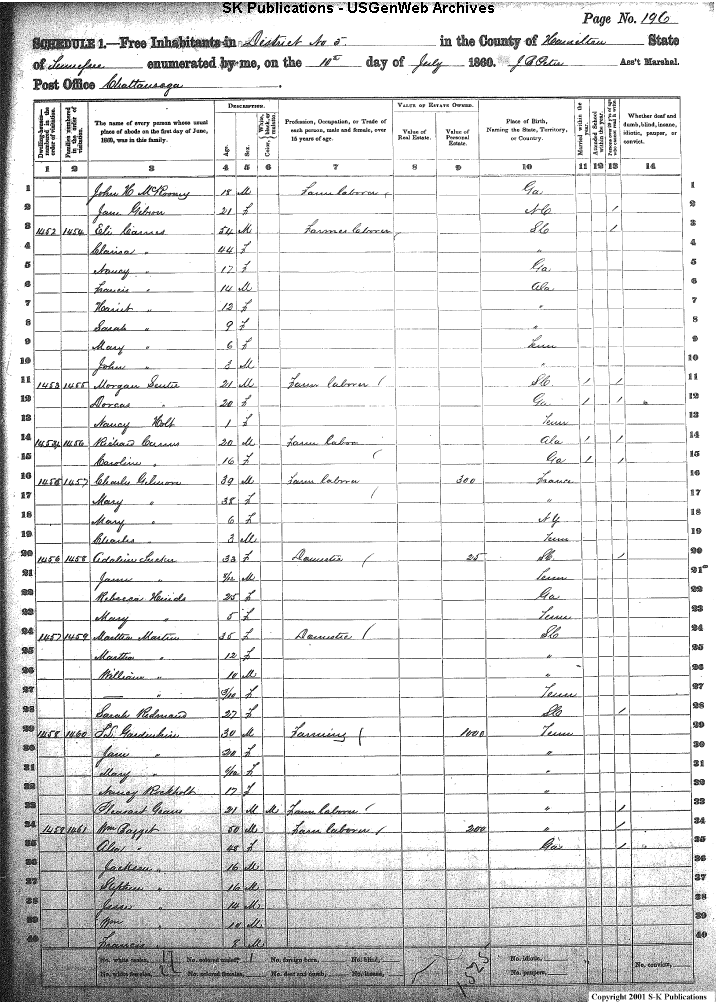 SK Publications - USGenWeb Archives
Page No. 196
SCHEDULE 1.—Free Inhabitants in District No 5 in the County of Hamilton State
of Tennessee enumerated by me, on the 10th day of July 1860. Ass't Marshal.
Post Office Chattanooga
Dwelling-houses— numbered in the order of visitation.
Families numbered in the order of visitation.
The name of every person whose usual place of abode on the first day of June, 1860, was in this family.
DESCRIPTION.
Age.
Sex.
Color, White, black, or mulatto.
Profession, Occupation, or Trade of each person, male and female, over 15 years of age.
VALUE OF ESTATE OWNED.
Value of Real Estate.
Value of Personal Estate.
Place of Birth, Naming the State, Territory, or Country.
Married within the year.
Attended School within the year.
Persons over 20 y'rs of age who cannot read & write.
Whether deaf and dumb, blind, insane, idiotic, pauper, or convict.
1 2 3 4 5 6 7 8 9 10 11 12 13 14
1 John H 18 M Farm laborer Ga 1
2 Jane 21 f NC / 2
3 1452 1454 Eli 54 M Farmer laborer SC / 3
4 " 44 f " 4
5 Nancy " 17 f Ga 5
6 Francis " 14 M Ala 6
7 " 12 f " 7
8 Sarah " 9 f " 8
9 Mary " 6 f Tenn 9
10 John " 3 M " 10
11 1453 1455 Morgan 21 M Farm laborer SC / / 11
12 Dorcas " 20 f Ga / / " 12
13 Nancy Holt 1 f Tenn 13
14 1454 1456 Richard 20 M Farm labor Ala / / 14
15 Caroline " 16 f Ga / / 15
16 1455 1457 Charles 39 M Farm labor 300 France 16
17 Mary " 38 f " 17
18 Mary " 6 f NY 18
19 Charles " 3 M Tenn 19
20 1456 1458 Adaline 33 f Domestic 25 SC / 20
21 " M Tenn 21
22 Rebecca Hinds 25 f Ga 22
23 Mary " 5 f Tenn 23
24 1457 1459 Martha Martin 35 f Domestic SC 24
25 Martha " 12 f " 25
26 William " 10 M " 26
27 — " f Tenn 27
28 Sarah Redmand 27 f SC / 28
29 1458 1460 Gardenhire 30 M Farming 1000 Tenn 29
30 Jane " 20 f " 30
31 Mary " f " 31
32 Nancy Rockholt 17 f " 32
33 Pleasant 21 M M Farm laborer " / 33
34 1459 1461 Wm 50 M Farm laborer 200 " / 34
35 " 45 f Ga / " 35
36 Jackson " 16 M 36
37 Stephen " 16 M 37
38 Jesse " 14 M 38
39 Wm " 10 M 39
40 Francis " 8 M 40
No. white males, 17 No. colored males, 1 No. foreign born, No. blind, No. idiotic, No. convicts,
No. white females, 22 No. colored females, No. deaf and dumb, No. insane, 1325 No. paupers,
Copyright 2001 S-K Publications